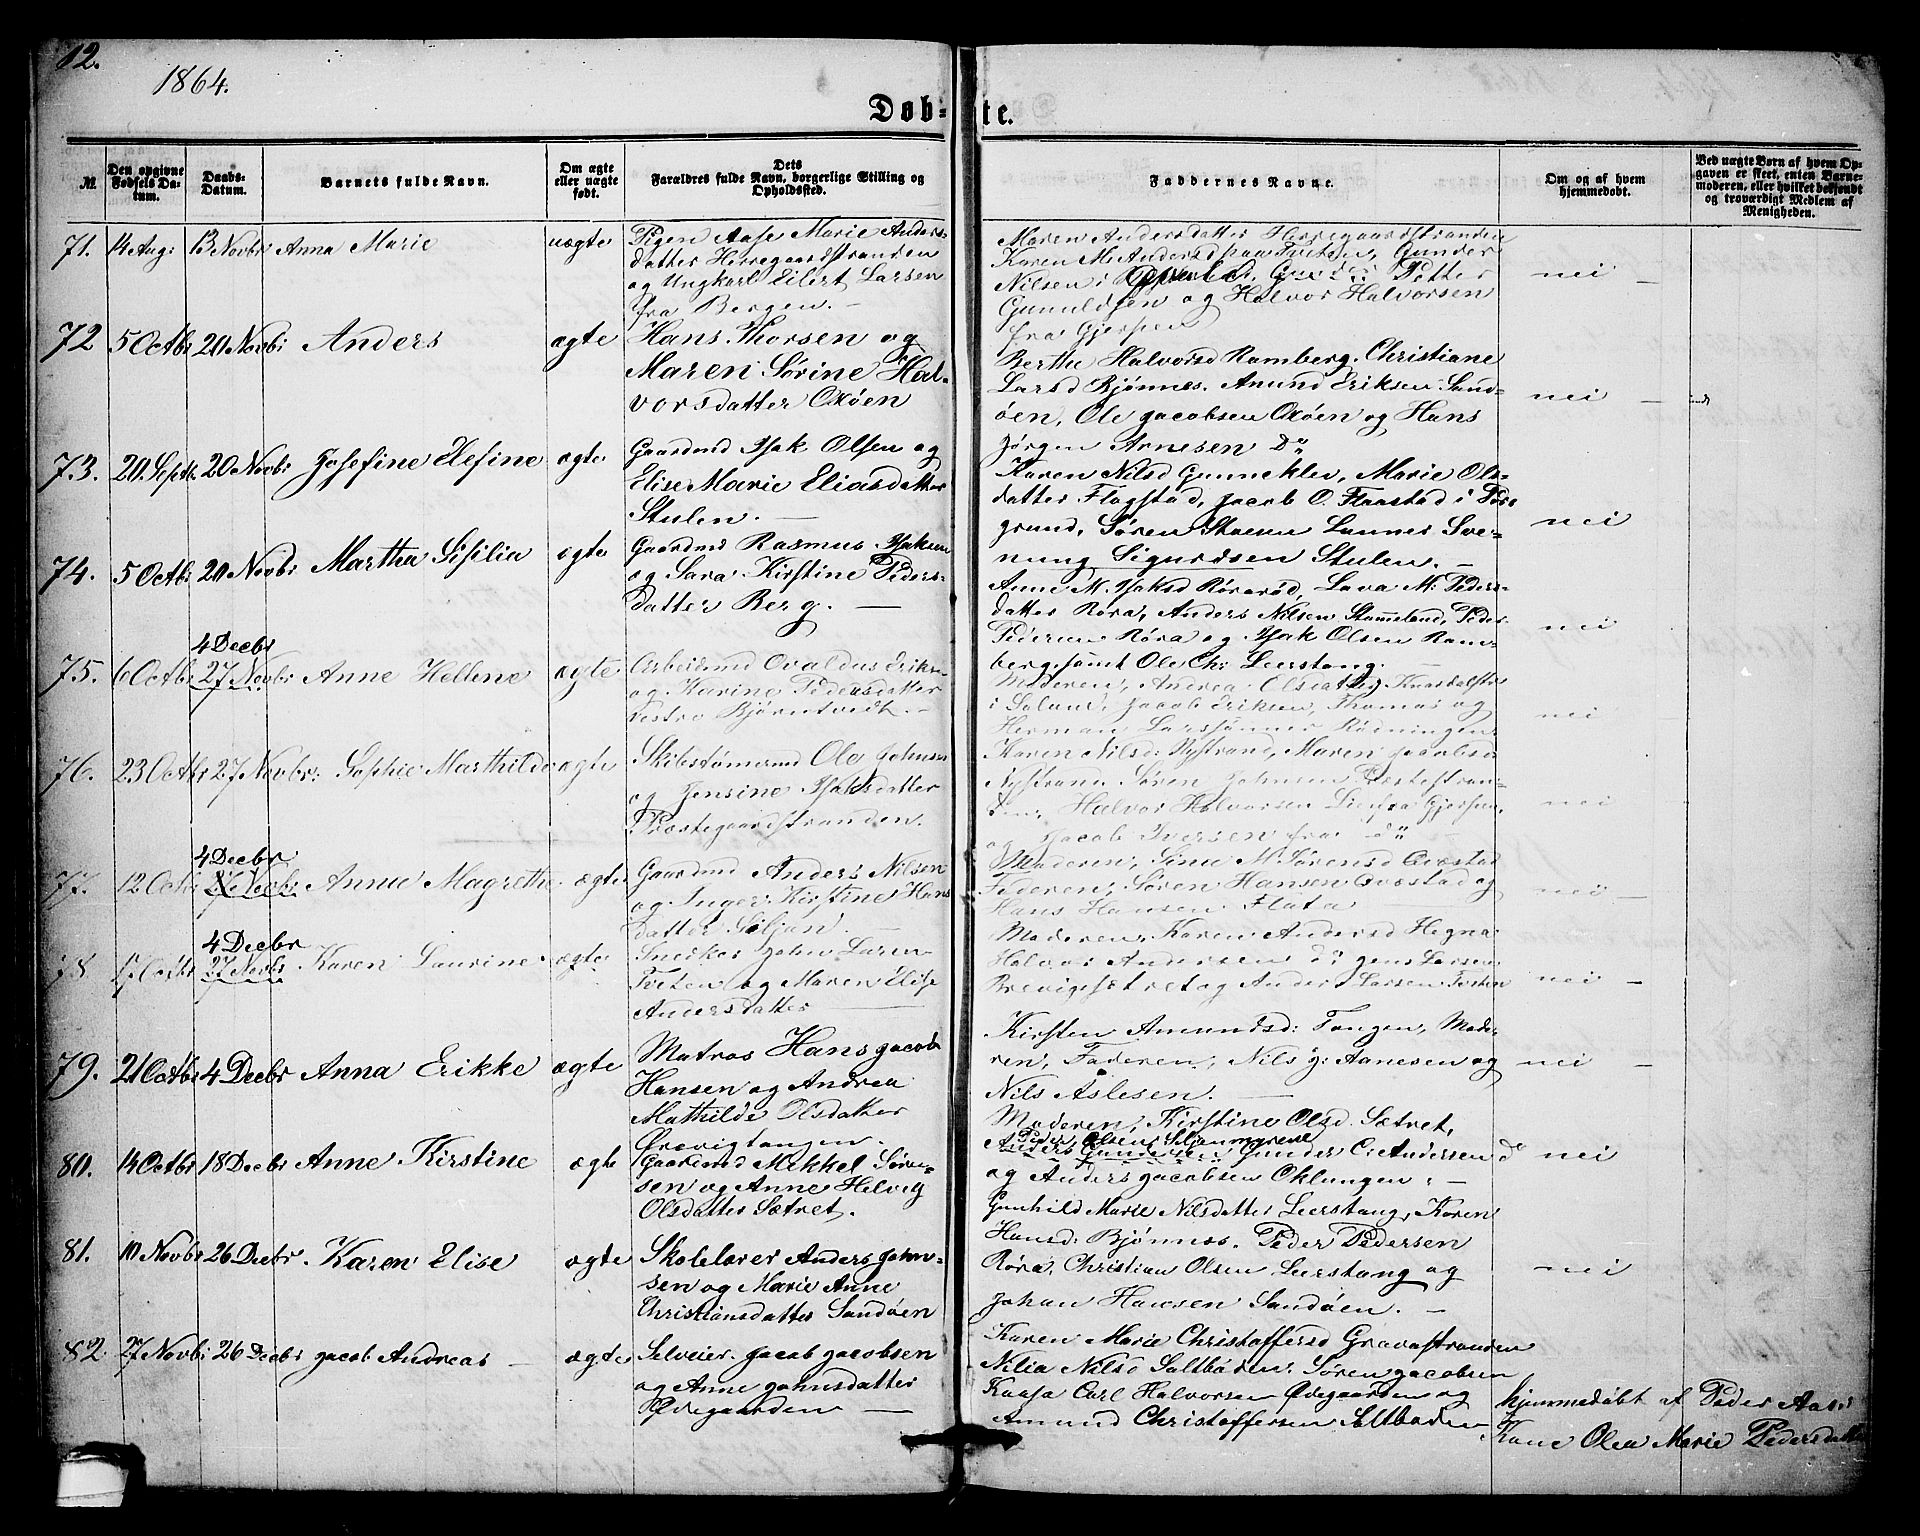 12.
1864.
Døb- te.
№
Den opgivne Fødsels Datum.
Daabs-Datum.
Barnets fulde Navn.
Om ægte eller uægte født.
Dets Forældres fulde Navn, borgerlige Stilling og Opholdssted.
Faddernes Navne.
Om og af hvem hjemmedøbt.
Ved uægte Børn af hvem Opgaven er skeet, enten Barnemoderen, eller hvilket bekjendt og troværdigt Medlem af Menigheden.
71. 14 Aug: 13 Novbr Anna Marie uægte
Pigen Aase Marie Anders-
datter Herregaardstranden
og Ungkarl Eilert Larsen
fra Bergen. —
Maren Andersdatter Herregaardstranden
Karen M. Andersd paa Tveten, Gunder
Nilsen i Petter
og Halvor Halvorsen
fra Gjerpen
nei —
72 5 Octbr 20 Novbr Anders ægte
Hans Thorsen og
Maren Sørine Hal-
vorsdatter Oxøen
Berthe Halvorsd Ramberg. Christiane
Larsd Bjønnes. Amund Eriksen Sand-
øen, Ole Jacobsen Oxøen og Hans
Jørgen Arnesen D"
nei —
73. 20 Septb. 20 Novbr Josefine Elefine ægte
Gaardmd Isak Olsen og
Elise Marie Eliasdatter
Stulen. —
Karen Nilsd Gunneklev, Marie Ols-
datter Flagstad, Jacob O. Flaastad i Pors-
grund, Søren Lunner Sve-
nung Sigurdsen Stulen. —
nei
74. 5 Octbr 20 Novbr Martha Sisilia ægte
Gaardmd Rasmus Isaksen
og Sara Kirstine Peders-
datter Berg. —
Anne M. Isaksd Rørarød, Lava M: Peders-
datter Røra, Anders Nilsen Peder
Pedersen Røra og Isak Olsen Ram-
berg samt Ole Chr Leerstang. —
nei —
75. 6 Octbr 4 Decbr 27 Novbr Anne Hellene ægte
Arbeidsmd Ovaldus Eriksen
og Karine Pedersdatter
vestre Bjørntvedt. —
Moderen, Andrea Olsdatter Knardalstr
i Solum, Jacob Eriksen, Thomas og
Herman Larssønner Rødningen
nei —
76. 23 Octbr 27 Novbr: Sophie Marthilde ægte
Skibstømmrmd Ole Johnsen
og Jensine Isaksdatter
Præstegaardstranden.
Karen Nilsd: Nystrand, Maren Jacobsd
Nystrand Søren Johnsen Præstestran-
den, Halvor Halvorsen Lie fra Gjerpen,
og Jacob Iversen fra d"
nei —
77. 12 Octbr 4 Decbr 27 Novbr Anna Magrethe. ægte
Gaardmd Anders Nilsen
og Inger Kirstine Hans
datter Siljan. —
Moderen, Sinu M. Sørensd Ovestad
Federen, Søren Hansen Ovestad og
Hans Hansen Flata —
nei —
78 17 Octbr 4 Decbr 27 Novbr Karen Laurine ægte
Snedker John Larsen
Tveten og Maren Elise
Andersdatter —
Moderen, Karen Andersd Hegna
Halvor Andersen d: Jens Larsen
Brevigsætret og Anders Larsen Tveten
nei —
79. 21 Octbr 4 Decbr Anna Erikke ægte
Matros Hans Jacob
Hansen og Andrea
Mathilde Olsdatter
Ørevigtangen.
Kirsten Amundsd: Tangen, Mode-
ren, Faderen, Nils J: Aanesen og
Nils Aslesen. —
nei —
80. 14 Octbr 18 Decbr Anne Kirstine ægte
Gaardmd Mikkel Søren-
sen og Anne Helvig
Olsdatter Sætret.
Moderen, Kirstine Olsd Sætret,
Peder Olsen Siljanmyrene
Anders Gundersen Gunder C: Andersen d
og Anders Jacobsen Oklungen. —
nei —
81. 10 Novbr 26 Decbr. Karen Elise ægte
Skolelærer Anders John-
sen og Marie Anne
Christiansdatter Sandøen
Gunhild Marie Nilsdatter Leerstang, Karen
Hansd: Bjønnes. Peder Pedersen
Røra, Christian Olsen Leerstang og
Johan Hansen Sandøen. —
nei —
82. 27 Novbr 26 Decbr Jacob Andreas — ægte
Selveier Jacob Jacobsen
og Anne Johnsdatter
Ødegaarden —
Karen Marie Christoffersd Gravastranden
Nilia Nilsd Saltboden. Søren Jacobsen
Kaasa Carl Halvorsen Ødegaarden og
Amund Christoffersen Altboden
hjemmedøbt af Peder Aases
Kone Olea Marie Pedersdatter